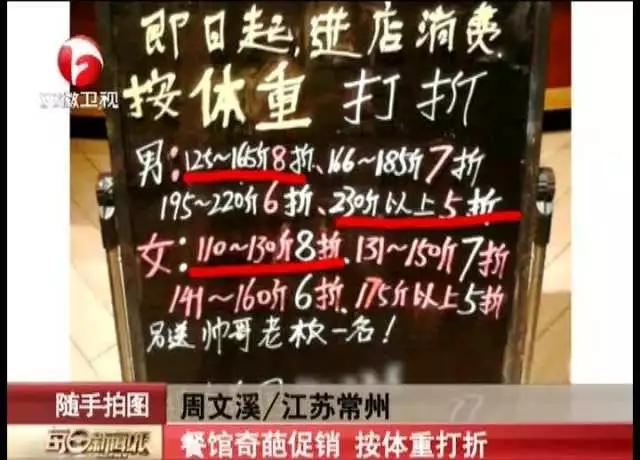 安徽卫视
即日起,进店消费
按体重打折
男:125~165斤8折、166~185斤7折
195~220斤6折、230斤以上5折
女:110~130斤8折、131~150斤7折
141~160斤6折、175斤以上5折
另送帅哥老板一名!
随手拍图
周文溪/江苏常州
每日新闻报
餐馆奇葩促销 按体重打折